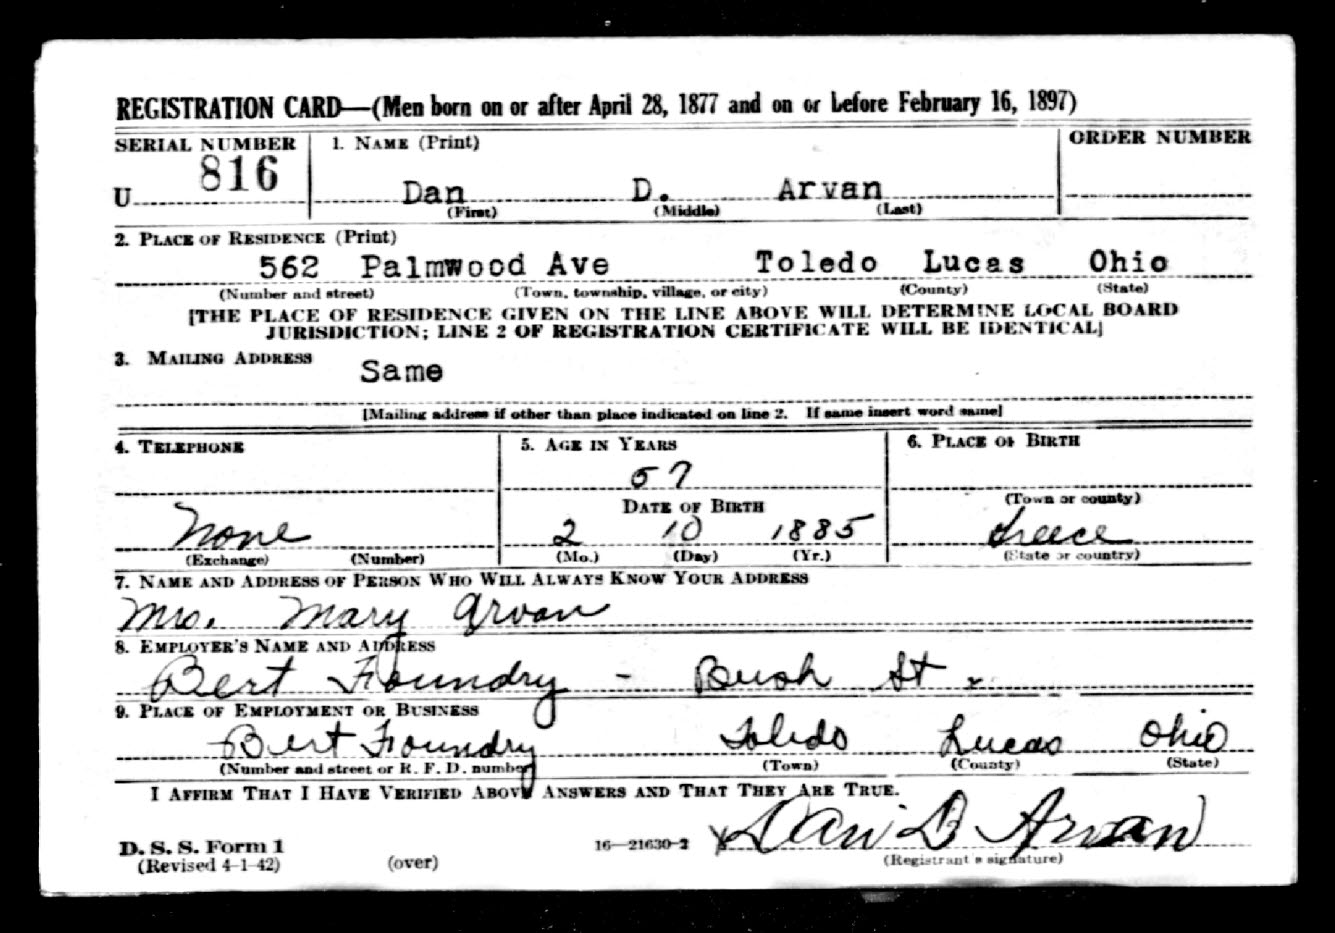 REGISTRATION CARD—(Men born on or after April 28, 1877 and on or before February 16, 1897)
SERIAL NUMBER 1. NAME (Print) ORDER NUMBER
U 816 Dan D. Arvan
(First) (Middle) (Last)
2. PLACE OF RESIDENCE (Print)
562 Palmwood Ave Toledo Lucas Ohio
(Number and street) (Town, township, village, or city) (County) (State)
[THE PLACE OF RESIDENCE GIVEN ON THE LINE ABOVE WILL DETERMINE LOCAL BOARD
JURISDICTION; LINE 2 OF REGISTRATION CERTIFICATE WILL BE IDENTICAL]
3. MAILING ADDRESS
Same
[Mailing address if other than place indicated on line 2. If same insert word same]
4. TELEPHONE 5. AGE IN YEARS 6. PLACE OF BIRTH
57
DATE OF BIRTH (Town or county)
None 2 10 1885 Greece
(Exchange) (Number) (Mo.) (Day) (Yr.) (State or country)
7. NAME AND ADDRESS OF PERSON WHO WILL ALWAYS KNOW YOUR ADDRESS
Mrs. Mary Arvan
8. EMPLOYER'S NAME AND ADDRESS
Bert Foundry - Bush St.
9. PLACE OF EMPLOYMENT OR BUSINESS
Bert Foundry Toledo Lucas Ohio
(Number and street or R. F. D. number) (Town) (County) (State)
I AFFIRM THAT I HAVE VERIFIED ABOVE ANSWERS AND THAT THEY ARE TRUE.
D. S. S. Form 1 16—21630-2 X Dan D Arvan
(Revised 4-1-42) (over) (Registrant's signature)